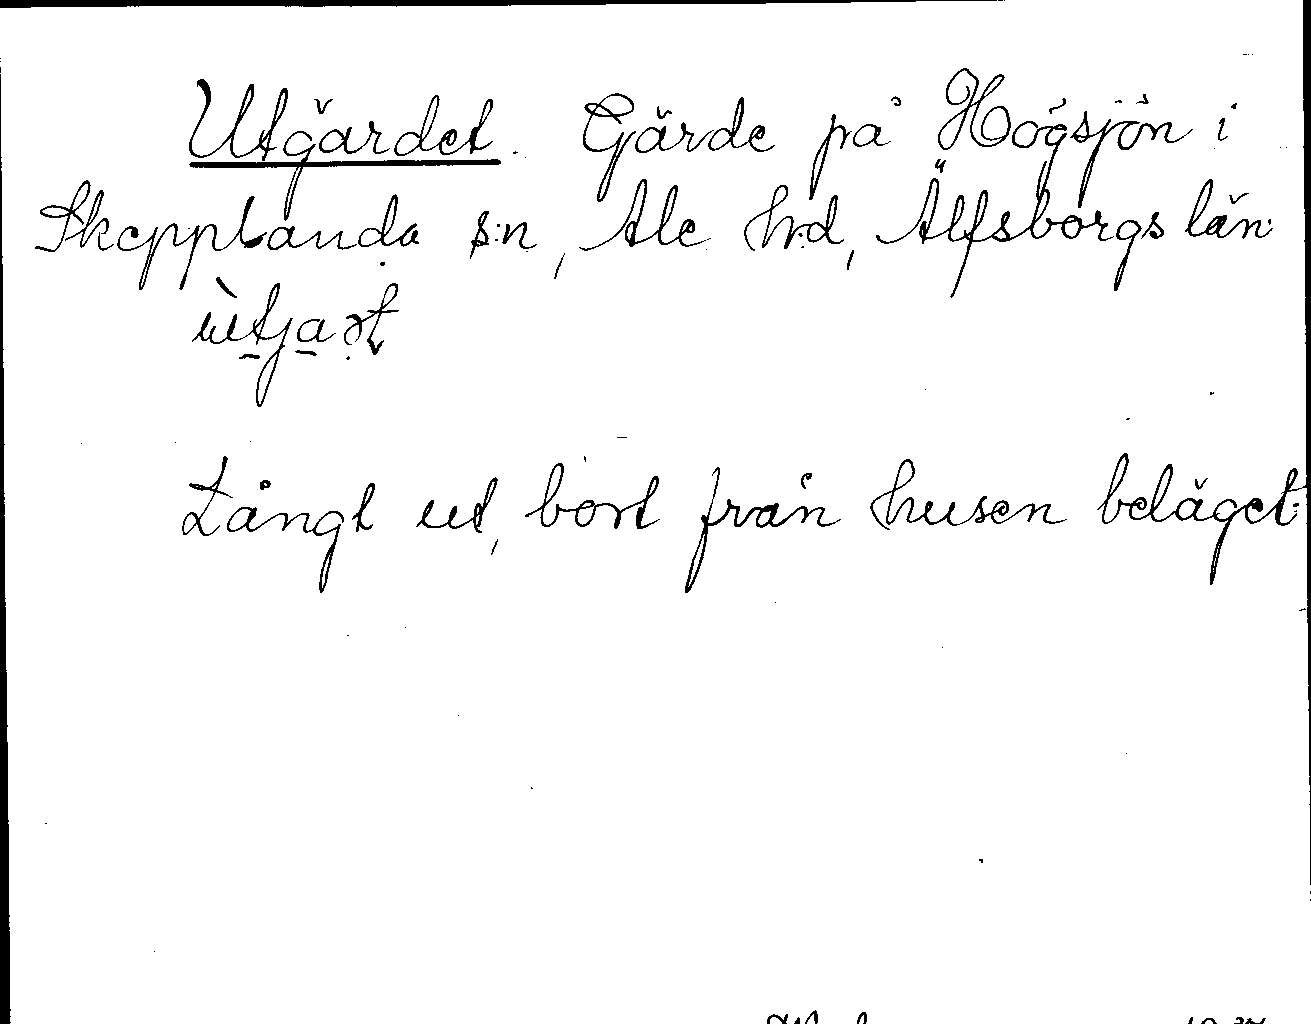 Utgärdet. Gärde på Högsjön i
Skepplanda s:n, Ale h:d, Älfsborgs län.
Långt ut, bort från husen beläget.